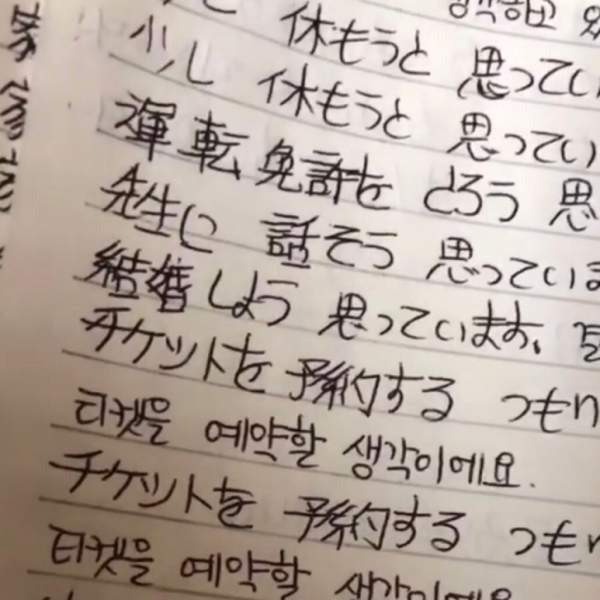 休もうと 思ってい
少し 休もうと 思ってい
運転免許を とろう 思
先生に 話そう 思っていま
結婚しよう 思っています。
チケットを 予約する つもり
티켓을 예약할 생각이에요.
チケットを 予約する つもり
티켓을 예약할 생각이에요